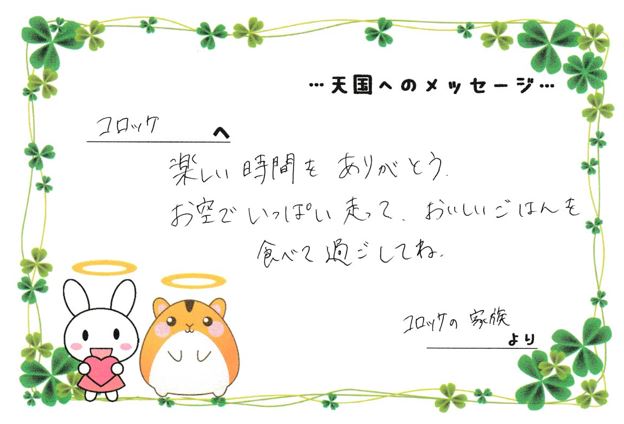 …天国へのメッセージ…
コロッケ へ
楽しい時間をありがとう.
お空でいっぱい走って、おいしいごはんを
食べて過ごしてね.
コロッケの家族
より